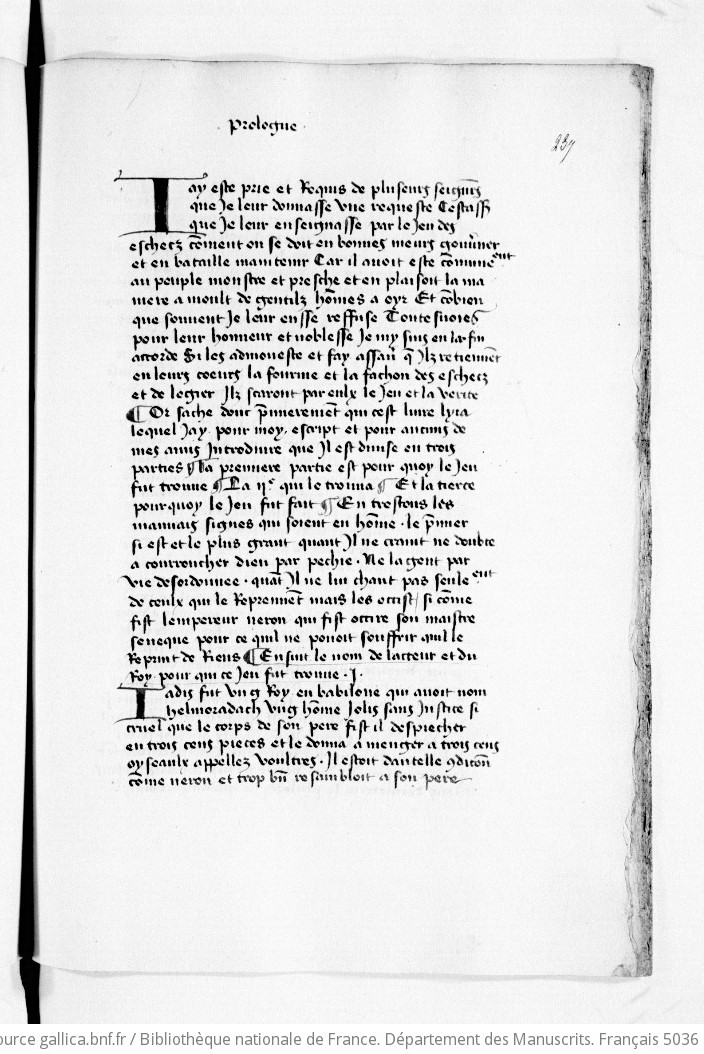 Prologue
237
Iay este prie et Requis de pluseurs seigneurs
que Je leur donnasse vne requeste Cestass
que Je leur enseignasse par le Jeu des
eschecz com̃ent on se doit en bonnes meurs gouu̾ner
et en bataille maintenir Car il auoit este com̃une͏̃ent
au peuple monstre et presche et en plaisoit la ma
niere a moult de gentilz hom̃es a oyr Et co͂bien
que souuent Je leur eusse reffuse Toutesuoies
pour leur honneur et noblesse Je my suis en la fin
accorde Si les admoneste et fay assau̾ q̃ Ilz retiennẽt
en leurs coeurs la fourme et la fachon des eschecz
et de legier Ilz scaront par eulx le Jeu et la verite
¶ Or sache donc p̃mierement qui cest liure lyra
lequel Jay pour moy escript et pour aucuns de
mes amis Introduire que Il est diuise en trois
parties ¶ La premiere partie est pour quoy le Jeu
fut trouue ¶ La ije qui le trouua ¶ Et la tierce
pourquoy le Jeu fut fait ¶ En trestous les
mauuais signes qui soient en hom̃e . le p̃mier
si est et le plus grant quant Il ne craint ne doubte
a courroucher dieu par pechie . Ne la gent par
vie desordonnee . quãt Il ne lui chaut pas seulement
de ceulx qui le Reprennẽt mais les occist / si com̃e
fist lempereur neron qui fist occire son maistre
seneque pour ce quil ne pouoit souffrir quil le
Reprint de Riens ¶ Ensuit le nom de lacteur et du
Roy pour qui ce Jeu fut trouue . j .
Iadis fut vng Roy en babilone qui auoit nom
helmoradach vng hom̃e Jolis sans Justice si
cruel que le corps de son pere fist il despiechier
en trois cens pieces et le donna a menger a trois cens
oyseaulx appellez voultres . Il estoit dautelle ꝯdicõn
com̃e neron et trop bñ resambloit a son pere
ource gallica.bnf.fr / Bibliothèque nationale de France. Département des Manuscrits. Français 5036